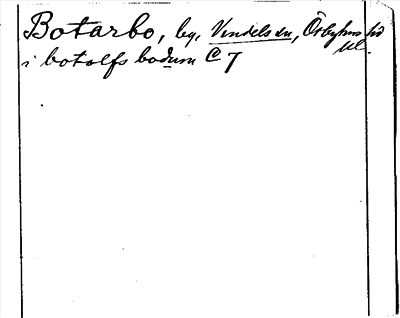 Botarbo, by, Vendels sn, Örbyhus hd
Ul.
i botolfs bodum C 7